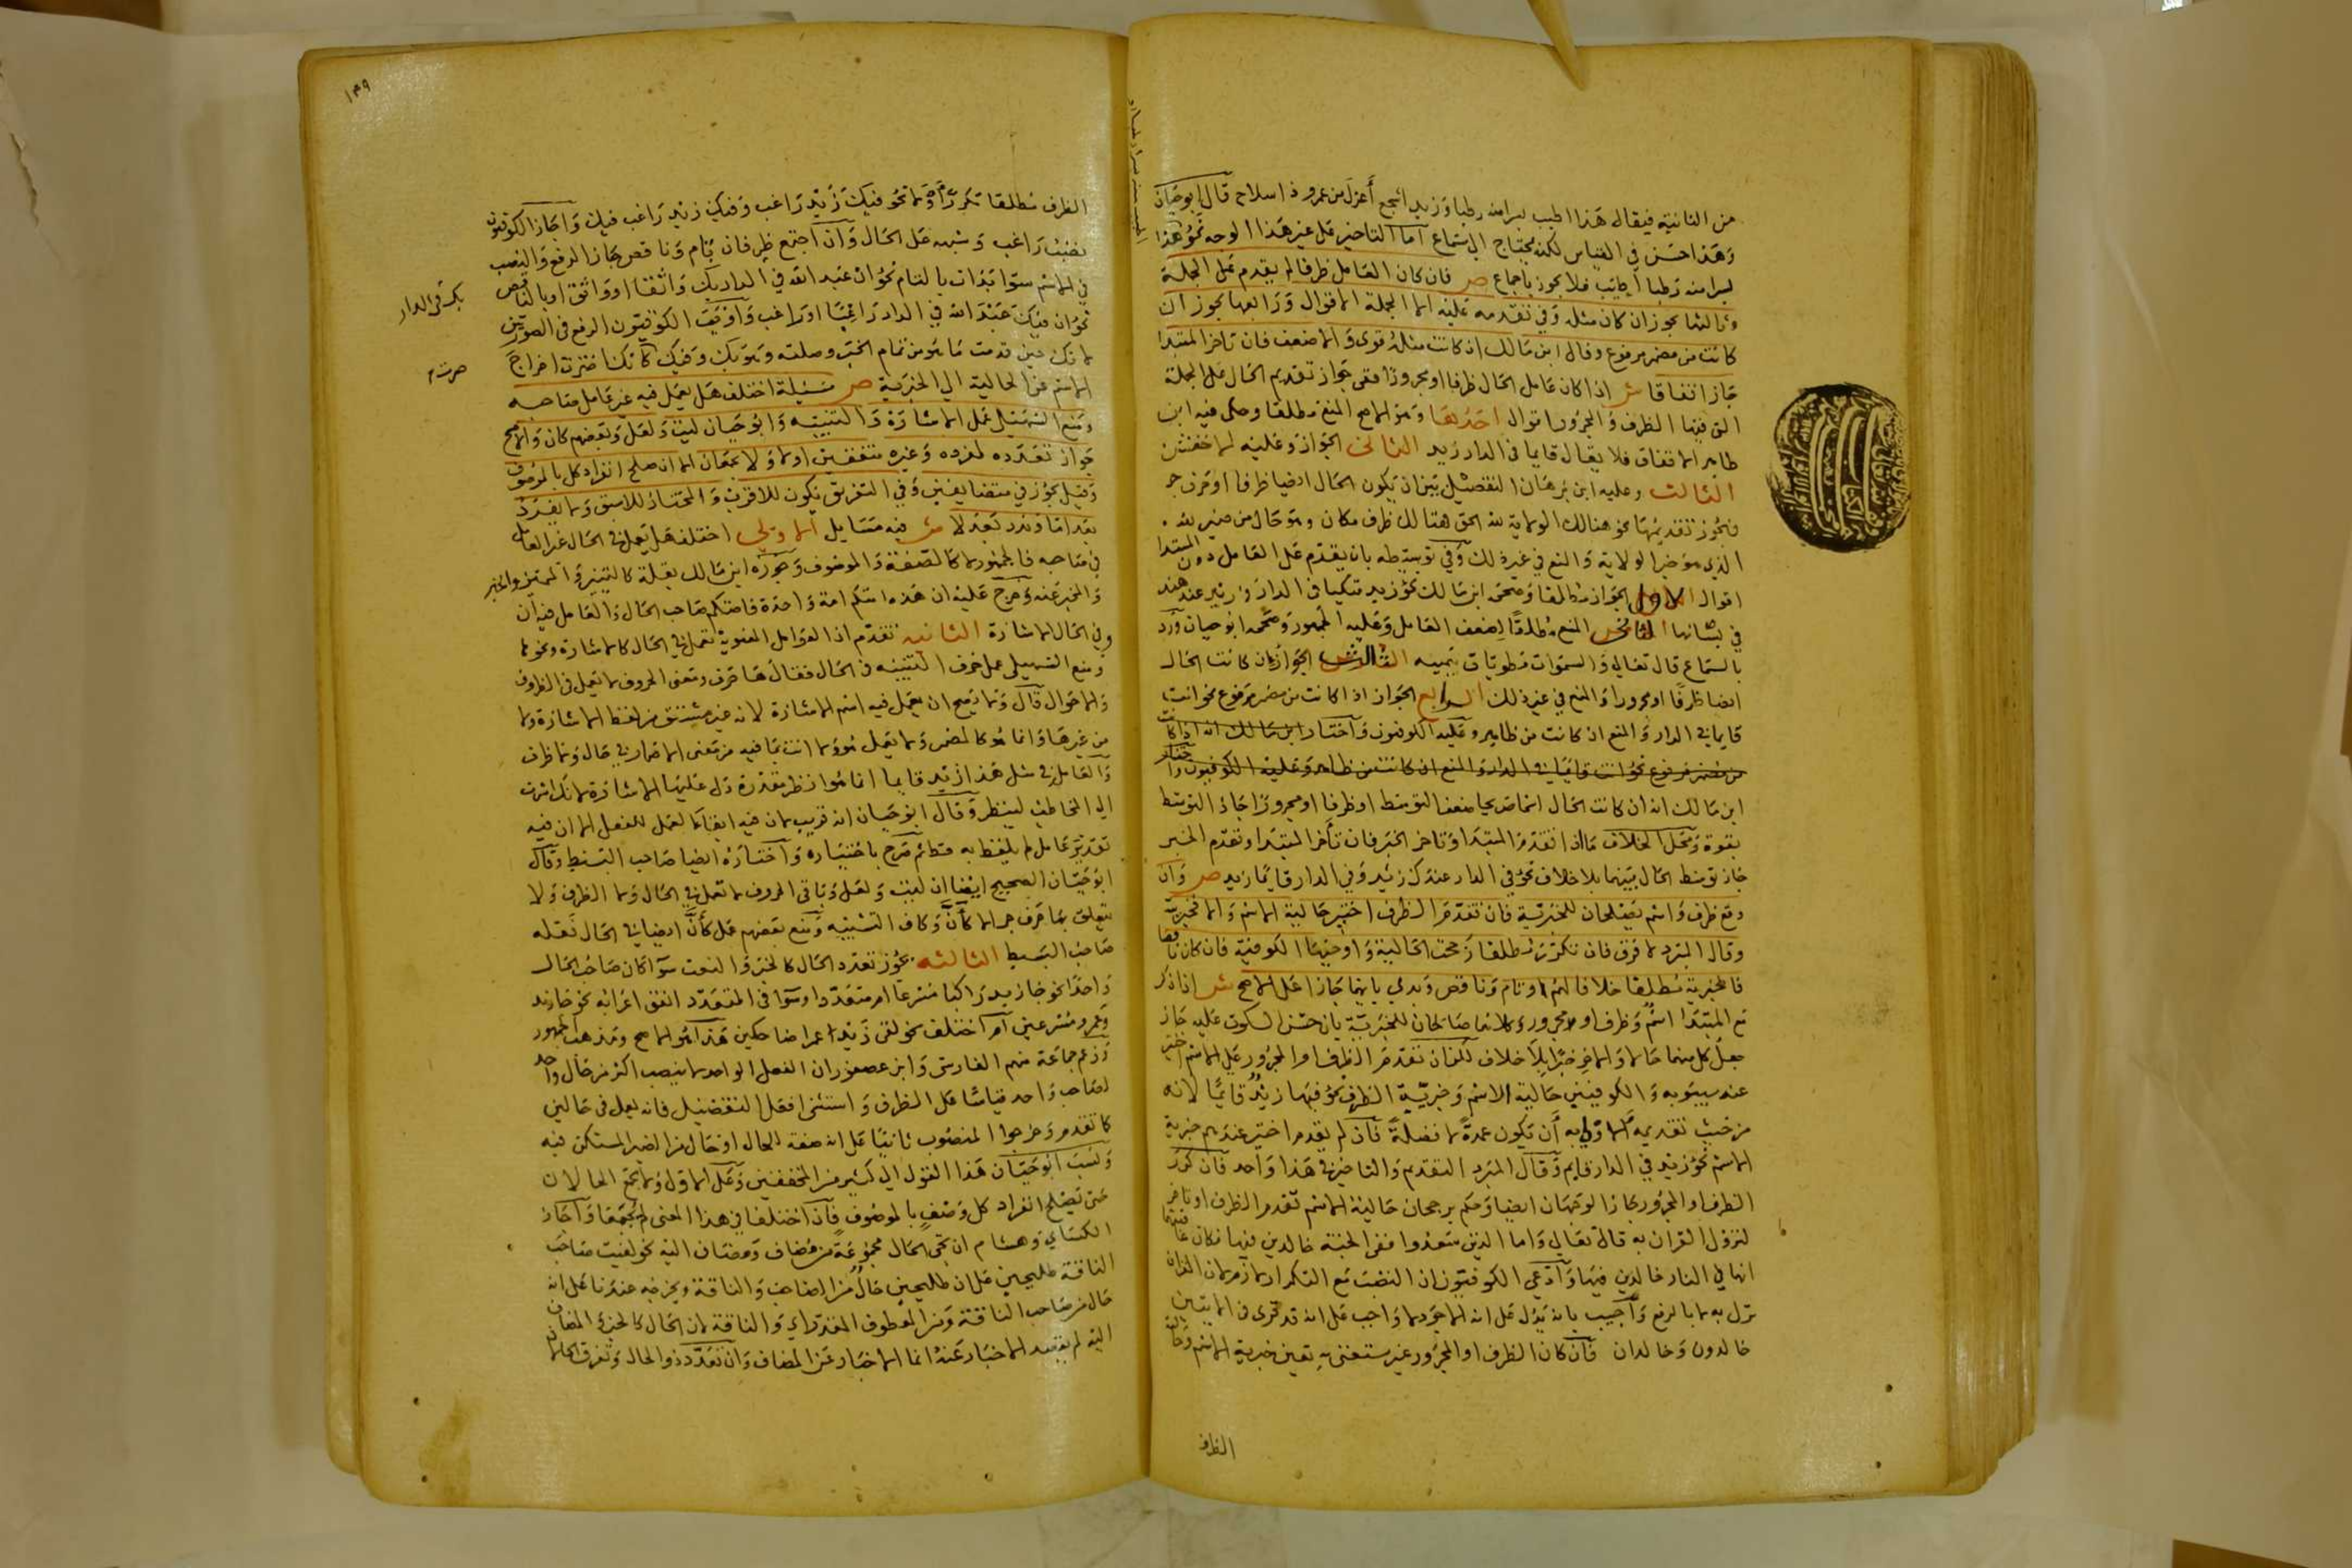 من الثانية فيقال هذا اطيب بسرا منه رطبا وزيد اشجع أعزل من عمرو ذا سلاح قال ابو حيان
وهذا حسن في القياس لكنه يحتاج الى سماع اما التاخير على غير هذا الوجه نحو هذا
بسرا منه رطبا اطيب فلا يجوز باجماع ص فان كان العامل ظرفا لم يقدم على الجملة
وثالثها يجوز ان كان مثله وفي تقدمه عليه لا الجملة اقوال ورابعها يجوز ان
كانت من مضمر مرفوع وقال ابن مالك ان كانت مثله قوى والا ضعف فان تاخر المبتدا
جاز اتفاقا ش اذا كان عامل الحال ظرفا او مجرورا ففى جواز تقديم الحال على الجملة
التي فيها الظرف والمجرور اقوال احدها وهو الاصح المنع مطلقا وحكى فيه ابن
طاهر الاتفاق فلا يقال قايما في الدار زيد الثاني الجواز وعليه الاخفش
الثالث وعليه ابن برهان التفصيل بين ان يكون الحال ايضا ظرفا او حرف جر
فيجوز تقديمها نحو هنالك الولاية لله الحق هنالك ظرف مكان وهو حال من ضمير لله
الذي هو خبر الولاية والمنع في غير ذلك وفي توسيطه بان يقدم على العامل دون المبتدا
اقوال الاول الجواز مطلقا وصححه ابن مالك نحو زيد متكيا في الدار وزيد عند هند
في بستانها الثاني المنع مطلقا لضعف العامل وعليه الجمهور وصححه ابو حيان ورد
بالسماع قال تعالى والسموات مطويات بيمينه الثالث الجواز ان كانت الحال
ايضا ظرفا او مجرورا والمنع في غير ذلك الرابع الجواز اذا كانت من مضمر مرفوع نحو انت
قايما في الدار والمنع ان كانت من ظاهر وعليه الكوفيون واختار ابن مالك انه اذا كانت
من مضمر مرفوع نحو انت قايما في الدار والمنع ان كانت من ظاهر وعليه الكوفيون واختار
ابن مالك انه ان كانت الحال اسما صريحا ضعف التوسط او ظرفا او مجرورا جاز التوسط
بقوة ومحل الخلاف ما اذا تقدم المبتدا وتاخر الخبر فان تأخر المبتدا وتقدم الخبر
جاز توسط الحال بينهما بلا خلاف نحو في الدار عندك زيد وفي الدار قايما زيد ص وان
وقع ظرف واسم يصلحان للخبرية فان تقدم الظرف اختير حالية الاسم والا فخبريته
وقال المبرد لا فرق فان تكرر مطلقا رجحت الحالية واوجبها الكوفية فان كان ناقصا
فالخبرية مطلقا خلافا لهم او تام وناقص وبدئ بايهما جازا على الاصح ش اذا ذكر
مع المبتدا اسم وظرف او مجرور وكلاهما صالحان للخبرية بان حسن السكوت عليه جاز
جعل كل منهما حالا والاخر خبرا بلا خلاف لكن ان تقدم الظرف او المجرور على الاسم اختير
عند سيبويه والكوفيين حالية الاسم وخبرية الظرف نحو فيها زيد قايما لانه
من حيث تقديمه الاولى به أن يكون عمدة لا فضلة فان لم يقدم اختير عندهم خبرية
الاسم نحو زيد في الدار قايم وقال المبرد التقديم والتاخير في هذا واحد فان كرر
الظرف او المجرور جاز الوجهان ايضا وحكم برجحان حالية الاسم تقدم الظرف او تاخر
لنزول القران به قال تعالى واما الذين سعدوا ففي الجنة خالدين فيها فكان عاقبتهما
انهما في النار خالدين فيها وادعى الكوفيون ان النصب مع التكرار لازم لان القران
نزل به لا بالرفع واجيب بانه يدل على انه الاجود لا واجب على انه قد قرئ في الايتين
خالدون وخالدان فان كان الظرف او المجرور غير مستغنى به تعين خبرية الاسم وحالية
الظرف
الظرف مطلقا تكرر أم لا نحو فيك زيد راغب وفيك زيد راغب فيك واجاز الكوفيون
نصب راغب وشبهه على الحال وان اجتمع ظرفان تام وناقص جاز الرفع والنصب
في الاسم سوا بدات بالتام نحو ان عبد الله في الدار بك واثقا او واثق او بالناقص
نحو ان فيك عبد الله في الدار راغبا او راغب واوجب الكوفيون الرفع في الصورتين
لانك حين قدمت ما هو من تمام الخبر وصلته وهو بك وفيك كانك اخترت اخراج
الاسم عن الحالية الى الخبرية ص مسئلة اختلف هل يعمل فيه غير عامل صاحبه
ومنع السهيلي عمل الاشارة والتنبيه وابو حيان ليت ولعل وبعضهم كان والاصح
جواز تعدده لمفرده وغيره متفقين اولا ولا يجمعان الا ان صلح انفراد كل بالموصوف
وقيل يجوز في متضايفين وفي التفريق تكون للاقرب والمختار للاسبق ولا يفرد
بعد اما وندر بعد لا ش فيه مسايل الاولى اختلف هل يعمل في الحال غير العامل
في صاحبه فالجمهور لا كالصفة والموصوف وجوزه ابن مالك بقلة كالتمييز والمميز والخبر
والمخبر عنه وخرج عليه ان هذه امتكم امة واحدة فامتكم صاحب الحال والعامل فيه ان
وفي الحال الاشارة الثانية تقدم ان العوامل المعنوية تعمل في الحال كالاشارة ونحوها
ومنع السهيلي عمل حرف التنبيه في الحال فقال ها حرف ومعنى الحروف لا تعمل في الظروف
والاحوال قال ولا يصح ان يعمل فيه اسم الاشارة لانه غير مشتق من لفظ الاشارة ولا
من غيرها وانما هو كالمضمر ولا يعمل هو ولا انت بما فيه من معنى الاضمار في حال ولا ظرف
والعامل في مثل هذا زيد قايما انما هو انظر مقدرة دل عليها الاشارة لانك اشرت
الى المخاطب لينظر وقال ابو حيان انه قريب لان فيه ابقاء العمل للفعل الا ان فيه
تقدير عامل لم يلفظ به قط ثم صرح باختياره واختاره ايضا صاحب البسيط وقال
ابو حيان الصحيح ايضا ان ليت ولعل وباقي الحروف لا تعمل في الحال ولا الظرف ولا
يتعلق بها حرف جر الا كأن وكاف التشبيه ومنع بعضهم عمل كأن ايضا في الحال نقله
صاحب البسيط الثالثة يجوز تعدد الحال كالخبر والنعت سوا كان صاحب الحال
واحدا نحو جا زيد راكبا مسرعا ام متعددا وسوا في المتعدد اتفق اعرابه نحو جا زيد
وعمرو مسرعين ام اختلف نحو لقى زيد عمرا ضاحكين هذا هو الاصح ومذهب الجمهور
وزعم جماعة منهم الفارسي وابن عصفور ان الفعل الواحد لا ينصب اكثر من حال واحد
لصاحب واحد قياسا على الظرف واستثنى افعل التفضيل فانه يعمل في حالين
كما تقدم وخرجوا المنصوب ثانيا على انه صفة للحال او حال من الضمير المستكن فيه
ونسب ابو حيان هذا القول الى كثير من المحققين وعلى الاول لا تجمع الحالان
حتى يصلح انفراد كل وصف بالموصوف فان اختلفا في هذا المعنى لم يجمعا واجاز
الكساي وهشام ان تجئ الحال مجموعة من مضاف ومضاف اليه نحو لقيت صاحب
الناقة طليحين على ان طليحين حال من الصاحب والناقة ويخرجه عندنا على انه
حال من صاحب الناقة ومن المعطوف المقدر اي والناقة لان الحال كالخبر والمضاف
اليه لم يقصد الاخبار عنه انما الاخبار عن المضاف وان تعدد ذو الحال وتفرق الحالان
بك في الدار
صرت
١٣٩